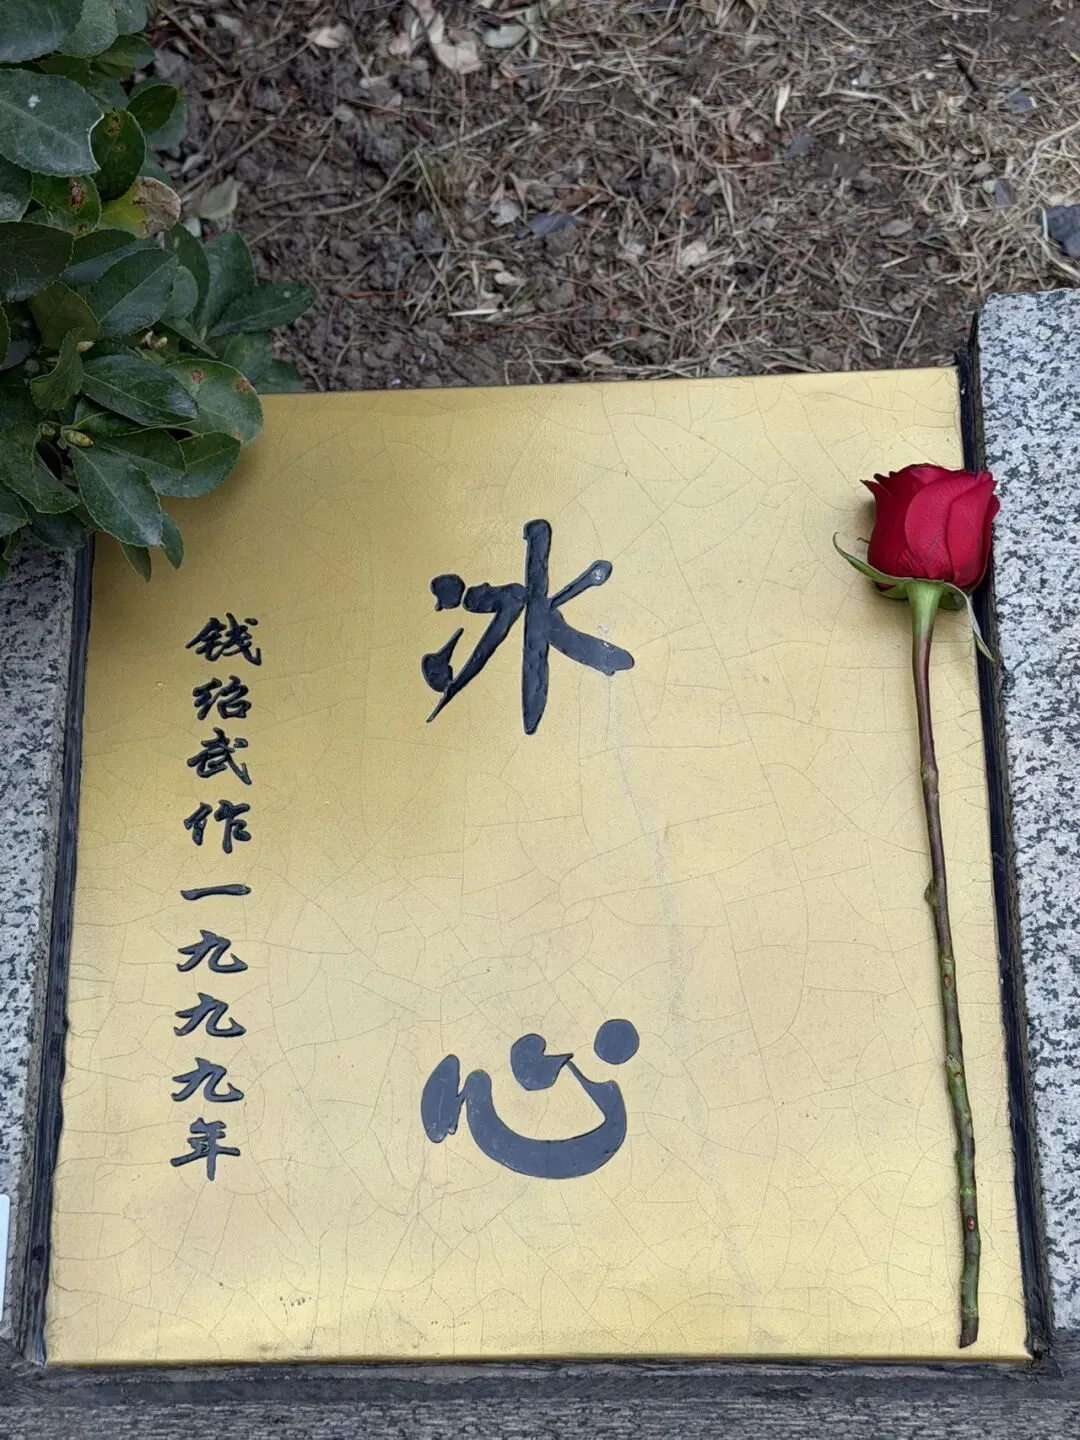 冰心
钱绍武作一九九九年